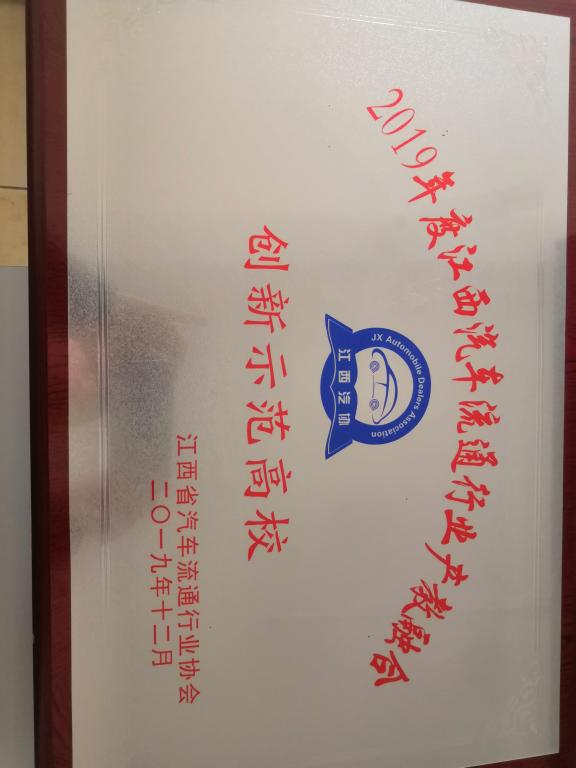 2019年度江西汽车流通行业产教融合
JX Automobile Dealers Association
江西汽协
创新示范高校
江西省汽车流通行业协会
二〇一九年十二月